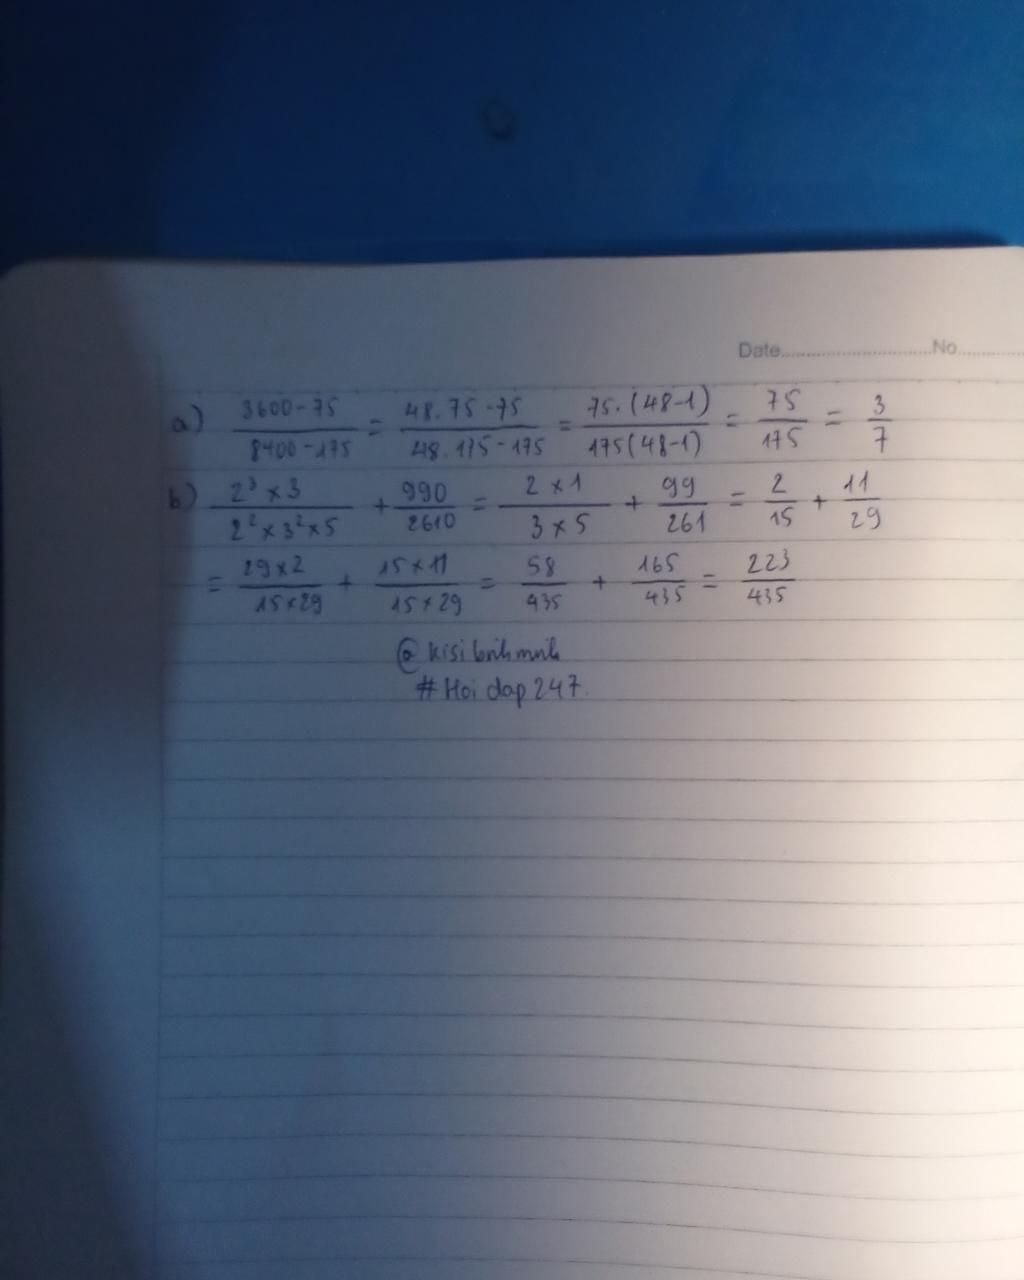 Date...............................No...........
a) \frac{3600-75}{8400-175} = \frac{48.75-75}{48.175-175} = \frac{75.(48-1)}{175(48-1)} = \frac{75}{175} = \frac{3}{7}
b) \frac{2^3 × 3}{2^2 × 3^2 × 5} + \frac{990}{2610} = \frac{2 × 1}{3 × 5} + \frac{99}{261} = \frac{2}{15} + \frac{11}{29}
= \frac{29 × 2}{15 × 29} + \frac{15 × 11}{15 × 29} = \frac{58}{435} + \frac{165}{435} = \frac{223}{435}
@ kisi
# Hoi dap 247.